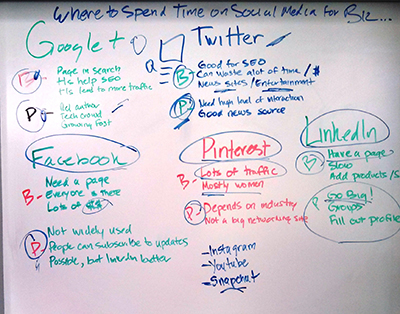 Where to Spend Time on Social Media for Biz...
Google+
B - Page in search
His help SEO
+1's lead to more traffic
P - Rel author
Tech crowd
Growing Fast
Twitter
B - Good for SEO
Can waste alot of time / $
News sites / Entertainment
P - Need high level of interaction
Good news source
Facebook
B - Need a page
Everyone is there
Lots of $$
P - Not widely used
People can subscribe to updates
Possible, but linkedin better
Pinterest
B - Lots of traffic
Mostly women
P - Depends on industry
Not a big networking site
LinkedIn
B - Have a page
Slow
Add products /S
P - Go Big!
Groups
Fill out profile
- Instagram
- Youtube
- Snapchat